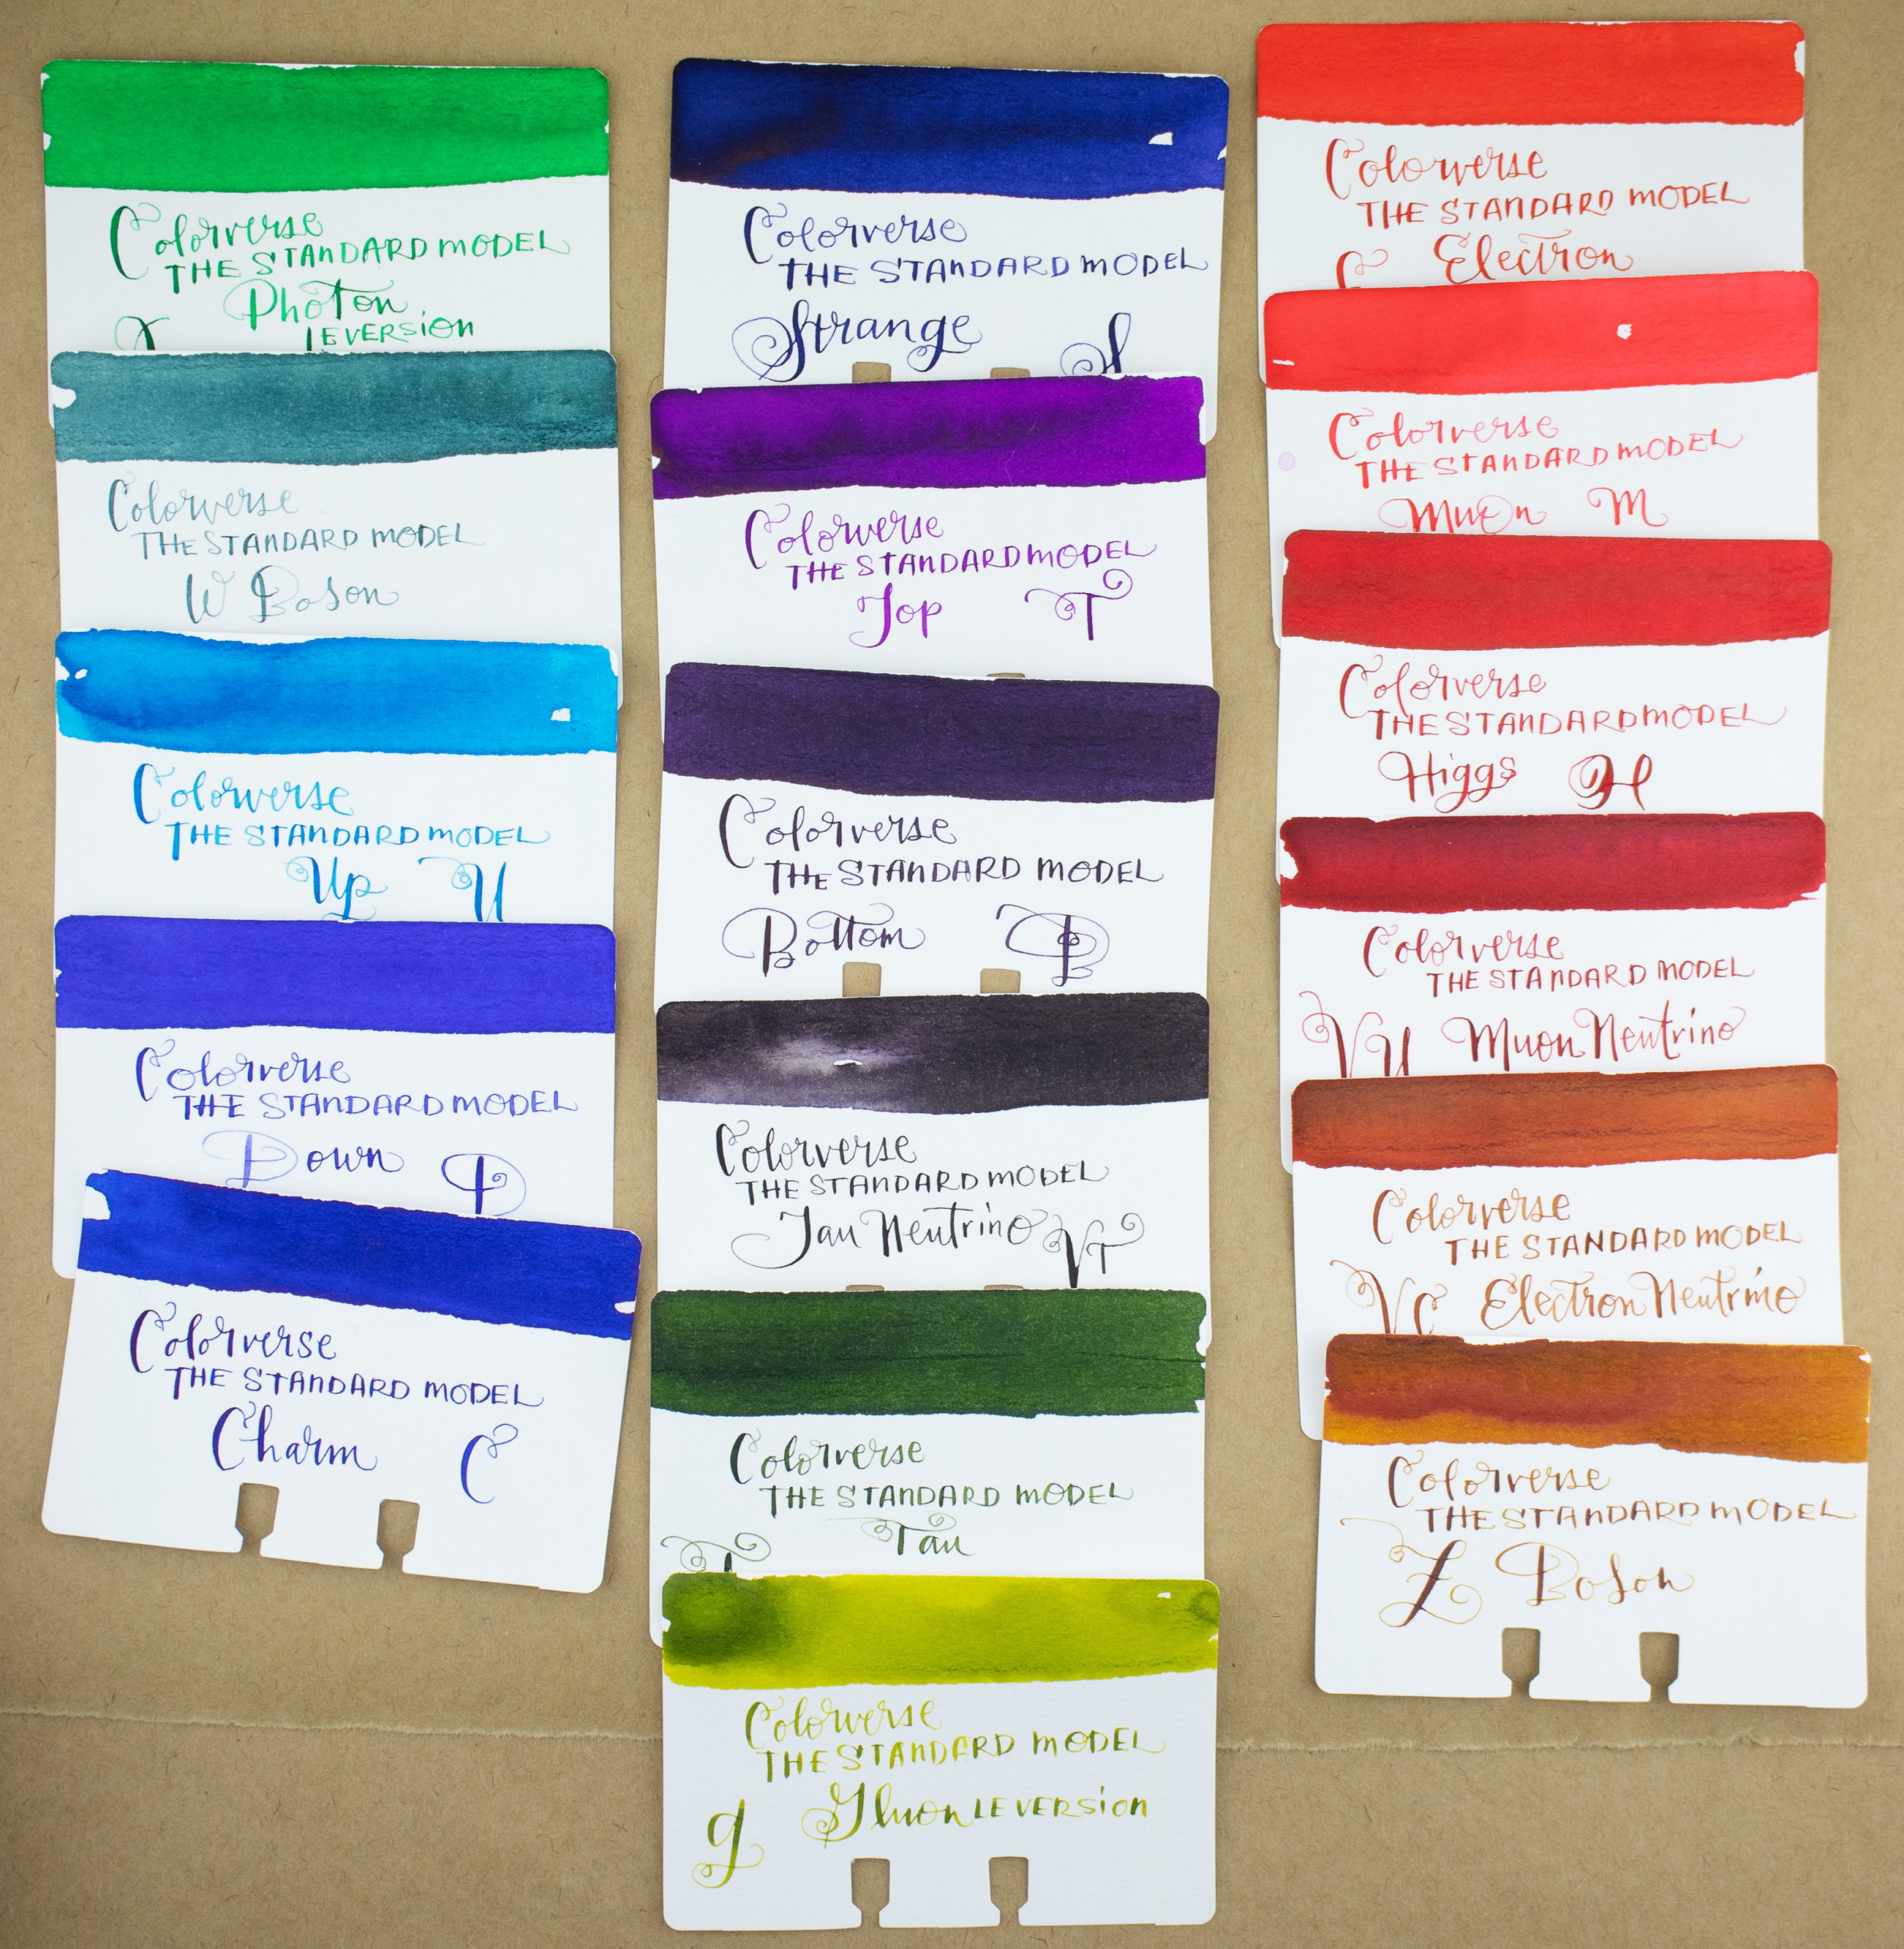 Colorverse
THE STANDARD MODEL
Photon
LE VERSION
γ
Colorverse
THE STANDARD MODEL
W Boson
Colorverse
THE STANDARD MODEL
Up U
Colorverse
THE STANDARD MODEL
Down D
Colorverse
THE STANDARD MODEL
Charm C
Colorverse
THE STANDARD MODEL
Strange S
Colorverse
THE STANDARD MODEL
Top T
Colorverse
THE STANDARD MODEL
Bottom B
Colorverse
THE STANDARD MODEL
Tau Neutrino VT
Colorverse
THE STANDARD MODEL
Tau
T
Colorverse
THE STANDARD MODEL
g Gluon LE VERSION
Colorverse
THE STANDARD MODEL
e Electron
Colorverse
THE STANDARD MODEL
Muon M
Colorverse
THE STANDARD MODEL
Higgs H
Colorverse
THE STANDARD MODEL
VU Muon Neutrino
Colorverse
THE STANDARD MODEL
Ve Electron Neutrino
Colorverse
THE STANDARD MODEL
Z Boson